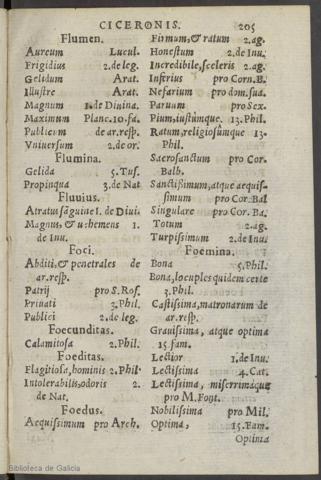 CICERONIS. 205
Flumen.
Aureum Lucul.
Frigidius 2.de leg.
Gelidum Arat.
Illustre Arat.
Magnum 1.de Diuina.
Maximum Planc.10.fa.
Publicum de ar.resp.
Vniuersum 2.de or.
Flumina.
Gelida 5.Tus.
Propinqua 3.de Nat
Fluuius.
Atratus sāguine 1.de Diui.
Magnus, & uehemens 1.
de Inu.
Foci.
Abditi, & penetrales de
ar.resp.
Patrij pro S.Rof.
Priuati 3.Phil.
Publici 2.de leg.
Foecunditas.
Calamitosa 2.Phil.
Foeditas.
Flagitiosa, hominis 2.Phil
Intolerabilis, odoris 2.
de Nat.
Foedus.
Aequissimum pro Arch.
Firmum, & ratum 2.ag.
Honestum 2.de Inu.
Incredibile, sceleris 2.ag.
Inferius pro Corn.B.
Nefarium pro dom.sua.
Paruum pro Sex.
Pium, iustumque. 13.Phil.
Ratum, religiosumque 13.
Phil.
Sacrosanctum pro Cor.
Balb.
Sanctissimum, atque aequis-
simum pro Cor.Bal
Singulare pro Cor.Ba.
Totum 2.ag.
Turpissimum 2.de Inu.
Foemina.
Bona 5.Phil.
Bona, locuples quidem certe
3.Phil.
Castissima, matronarum de
ar.resp.
Grauissima, atque optima
15 fam.
Lectior 1.de Inu.
Lectissima 4.Cat.
Lectissima, miserrimaque
pro M.Font.
Nobilissima pro Mil.
Optima, 15.Fam.
Optima
Biblioteca de Galicia